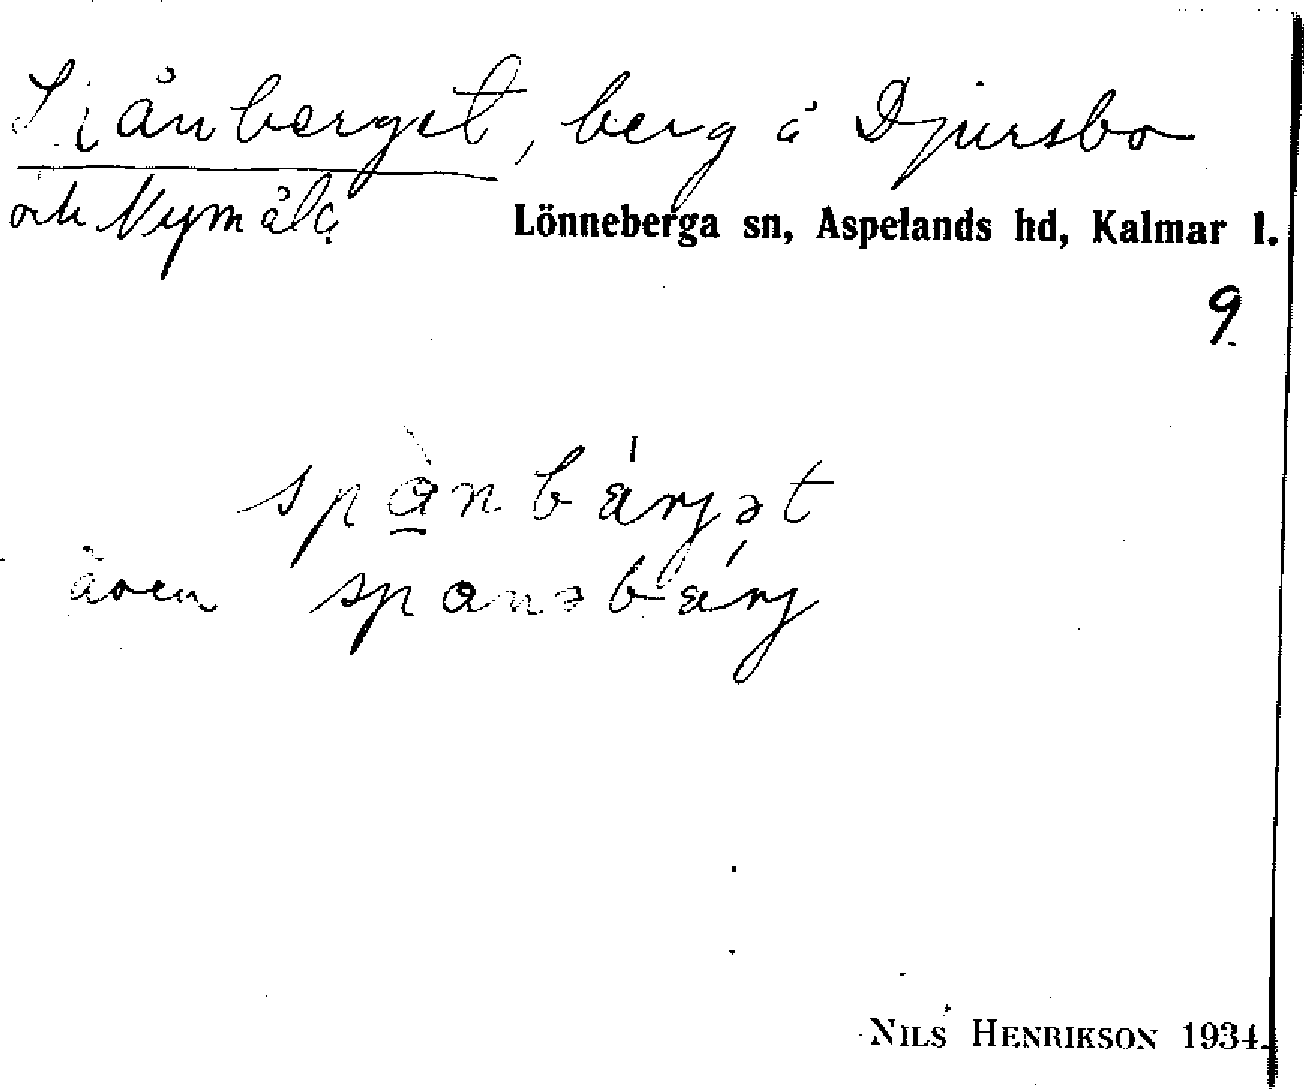 Spånberget, berg å Djursbo
och Nymåla
Lönneberga sn, Aspelands hd, Kalmar l.
9.
spånbærjət
även spånəbærj
NILS HENRIKSON 1934.